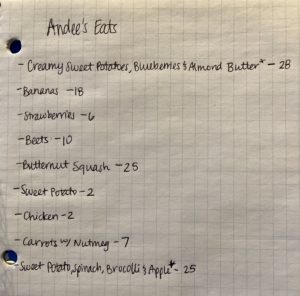 Andee's Eats
- Creamy Sweet Potatoes, Blueberries & Almond Butter* - 28
- Bananas - 18
- Strawberries - 6
- Beets - 10
- Butternut Squash - 25
- Sweet Potato - 2
- Chicken - 2
- Carrots w/ Nutmeg - 7
- Sweet Potato, Spinach, Brocolli & Apple* - 25